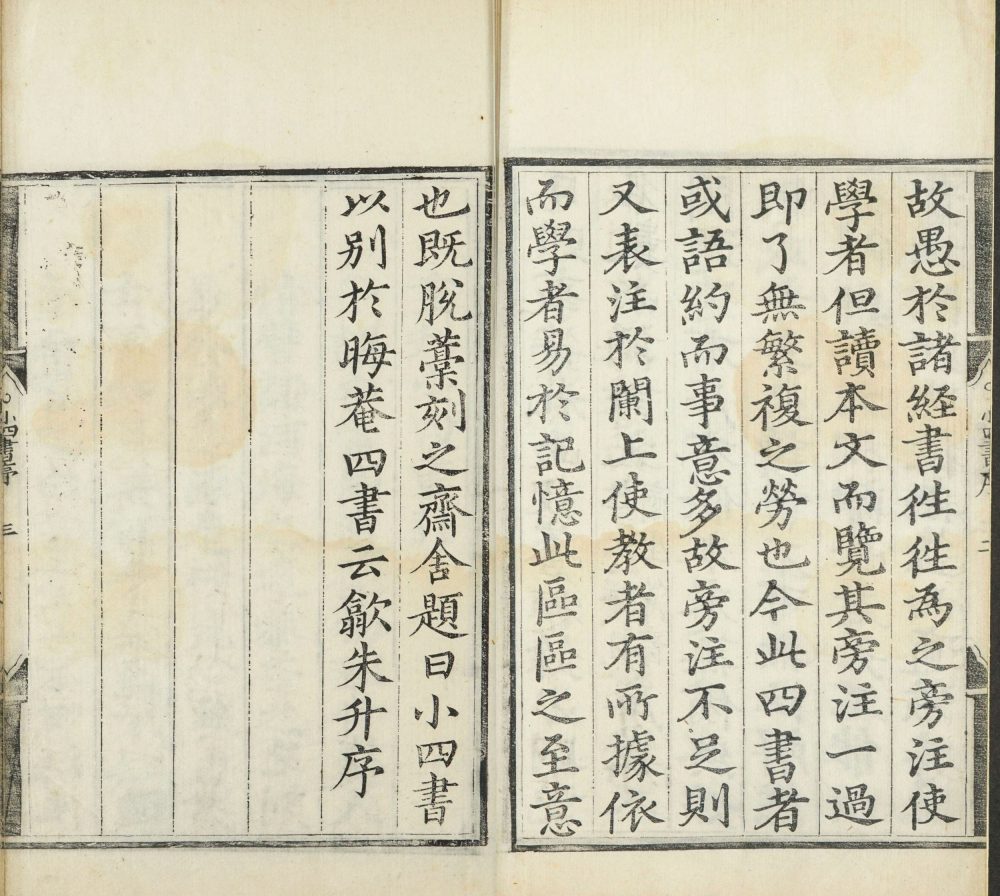 故愚於諸經書徃徃為之旁注使
學者但讀本文而覽其旁注一過
即了無繁複之勞也今此四書者
或語約而事意多故旁注不足則
又表注於闌上使教者有所據依
而學者易於記憶此區區之至意
也既脫藁刻之齋舍題曰小四書
以别於晦菴四書云歙朱升序
小四書序 三